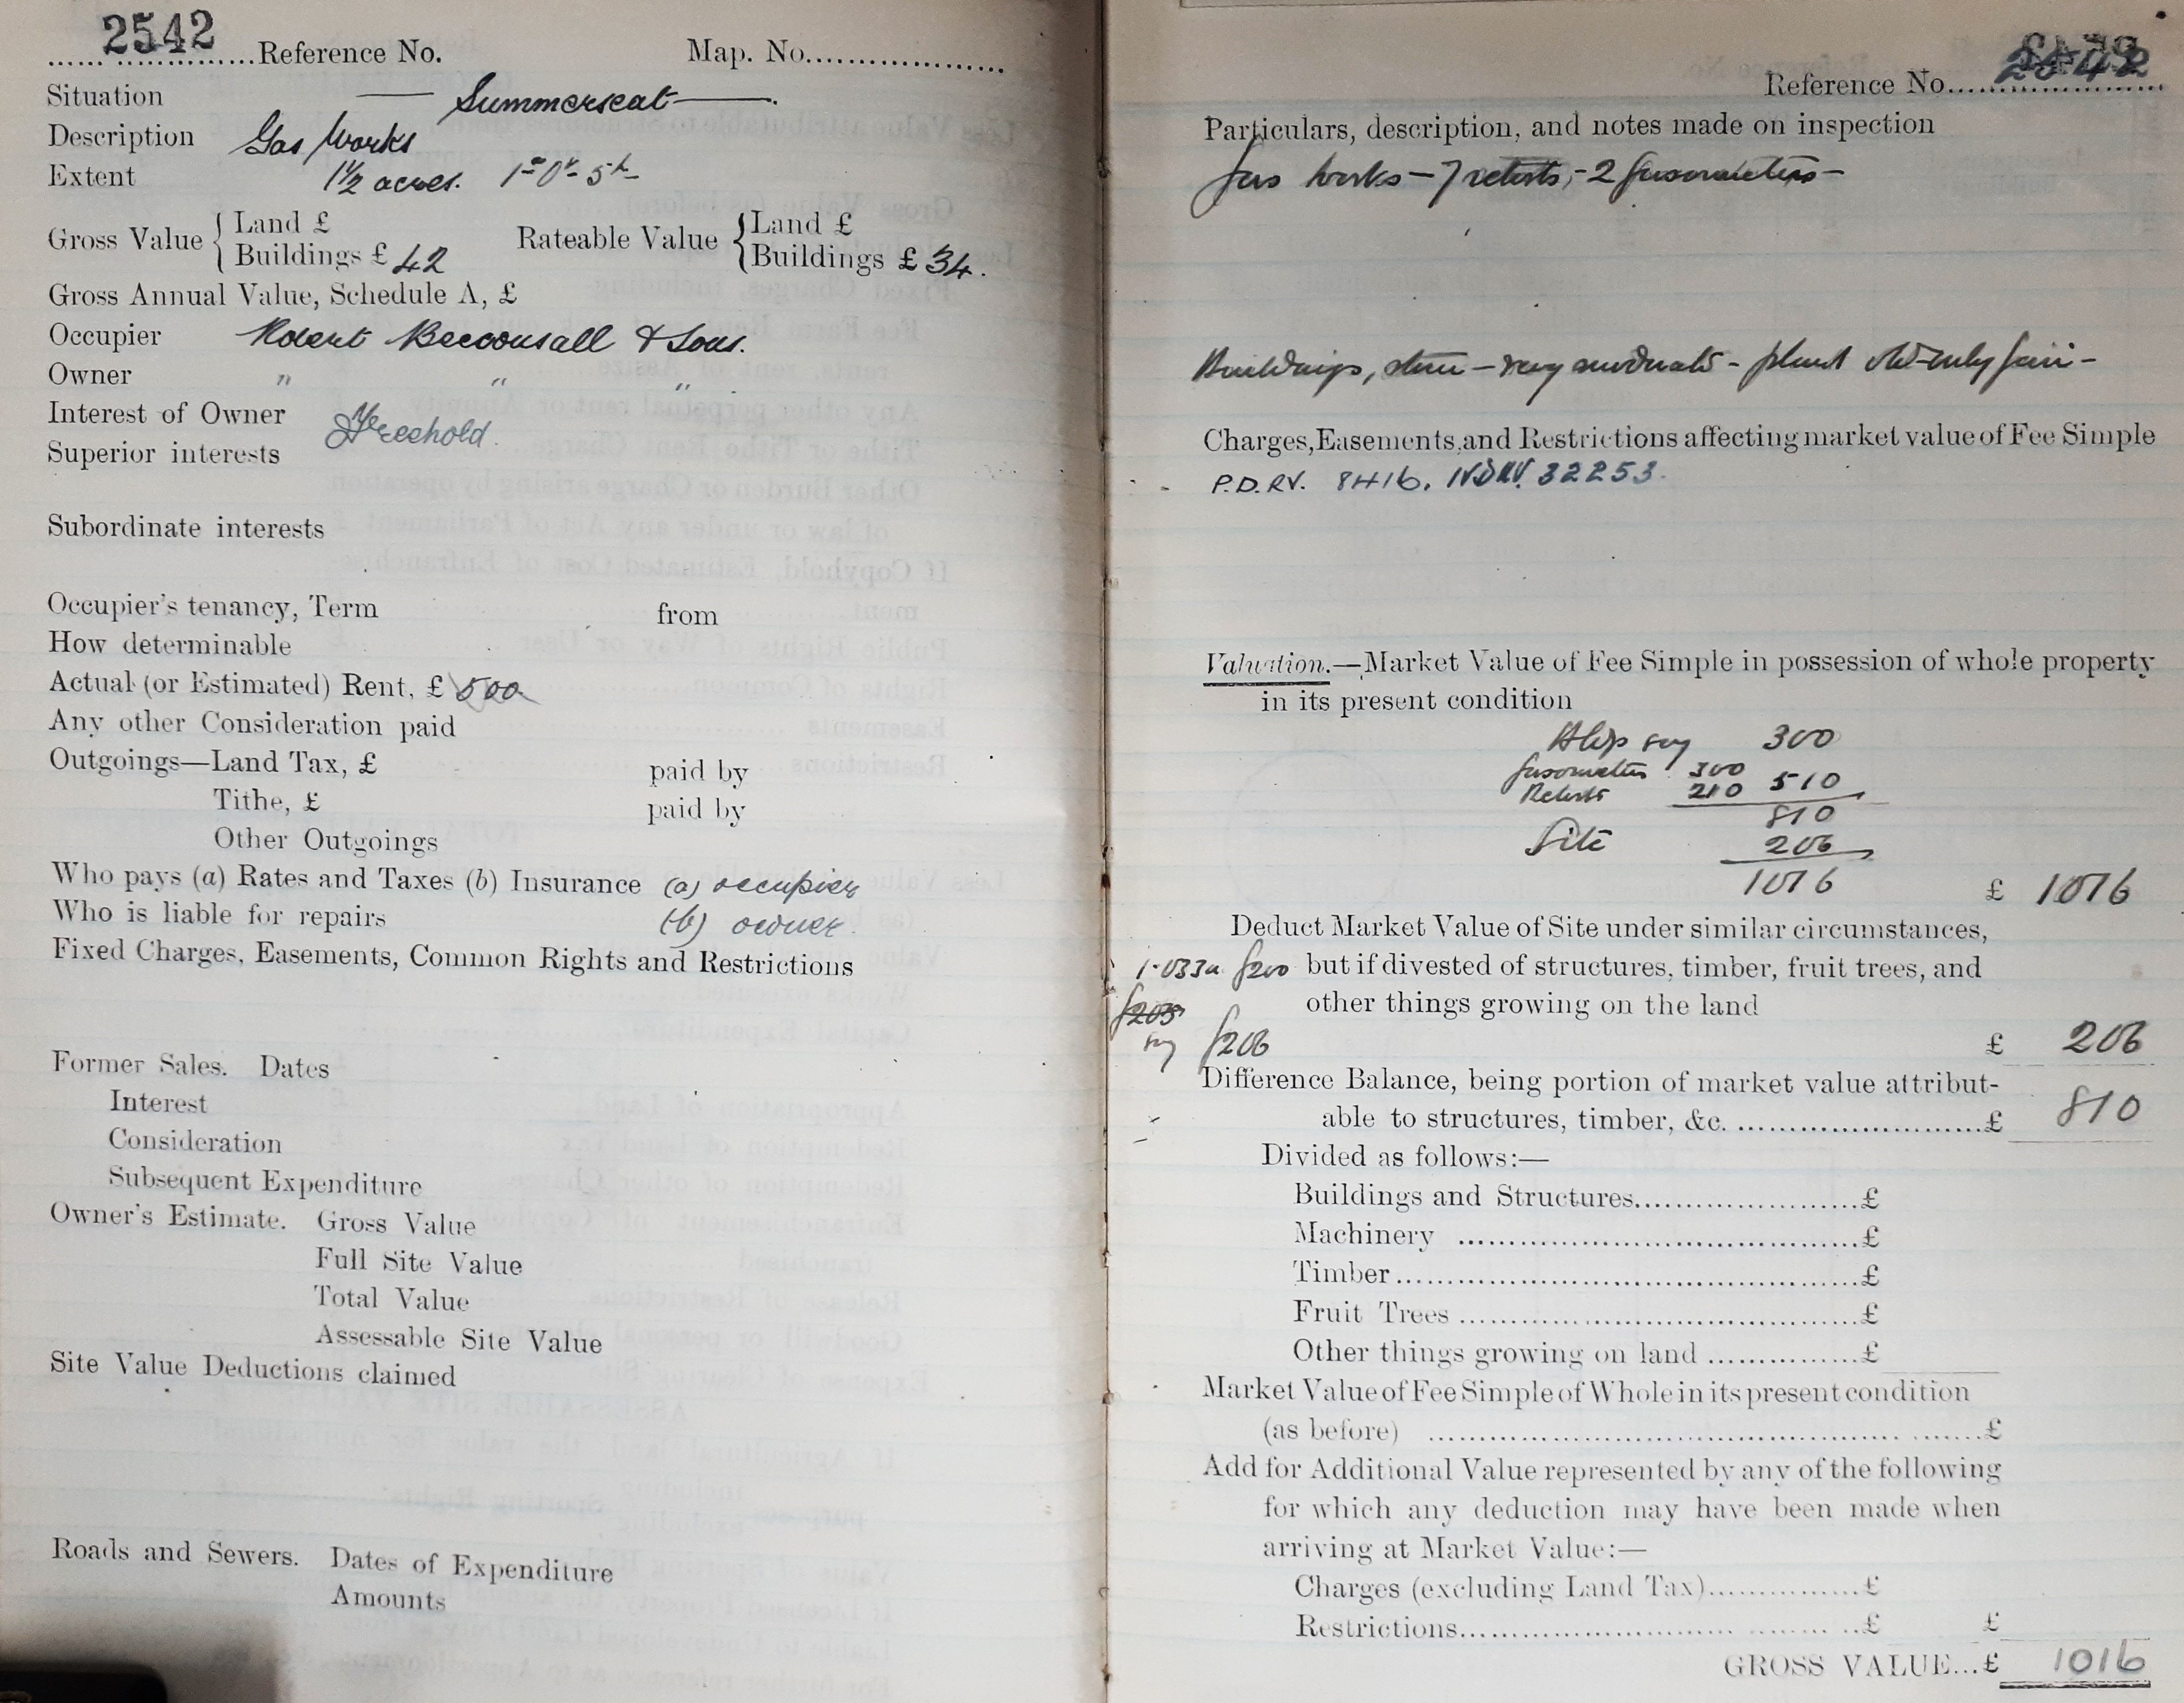 2542 Reference No. Map. No.
Situation — Summerseat —.
Description Gas Works
Extent 1½ acres. 1a- 0r- 5p-
Gross Value { Land £ Rateable Value { Land £
Buildings £ 42 Buildings £ 34.
Gross Annual Value, Schedule A, £
Occupier Robert Beconsall & Sons.
Owner " " "
Interest of Owner Freehold.
Superior interests
Subordinate interests
Occupier's tenancy, Term from
How determinable
Actual (or Estimated) Rent, £ 500
Any other Consideration paid
Outgoings—Land Tax, £ paid by
Tithe, £ paid by
Other Outgoings
Who pays (a) Rates and Taxes (b) Insurance (a) occupier
Who is liable for repairs (b) owner.
Fixed Charges, Easements, Common Rights and Restrictions
Former Sales. Dates
Interest
Consideration
Subsequent Expenditure
Owner's Estimate. Gross Value
Full Site Value
Total Value
Assessable Site Value
Site Value Deductions claimed
Roads and Sewers. Dates of Expenditure
Amounts
Reference No. 2542
Particulars, description, and notes made on inspection
Gas works – 7 retorts, – 2 gasometers –
Buildings, – very moderate – plant old – only fair –
Charges, Easements, and Restrictions affecting market value of Fee Simple
P.D.RV. 8416. 32253.
Valuation.—Market Value of Fee Simple in possession of whole property
in its present condition
say 300
gasometers 300
Retorts 210 510
810
Site 206
1016 £ 1016
Deduct Market Value of Site under similar circumstances,
1.033a £200 but if divested of structures, timber, fruit trees, and
£205 other things growing on the land
say £206 £ 206
Difference Balance, being portion of market value attribut-
able to structures, timber, &c. £ 810
Divided as follows:—
Buildings and Structures £
Machinery £
Timber £
Fruit Trees £
Other things growing on land £
Market Value of Fee Simple of Whole in its present condition
(as before) £
Add for Additional Value represented by any of the following
for which any deduction may have been made when
arriving at Market Value:—
Charges (excluding Land Tax) £
Restrictions £ £
GROSS VALUE...£ 1016